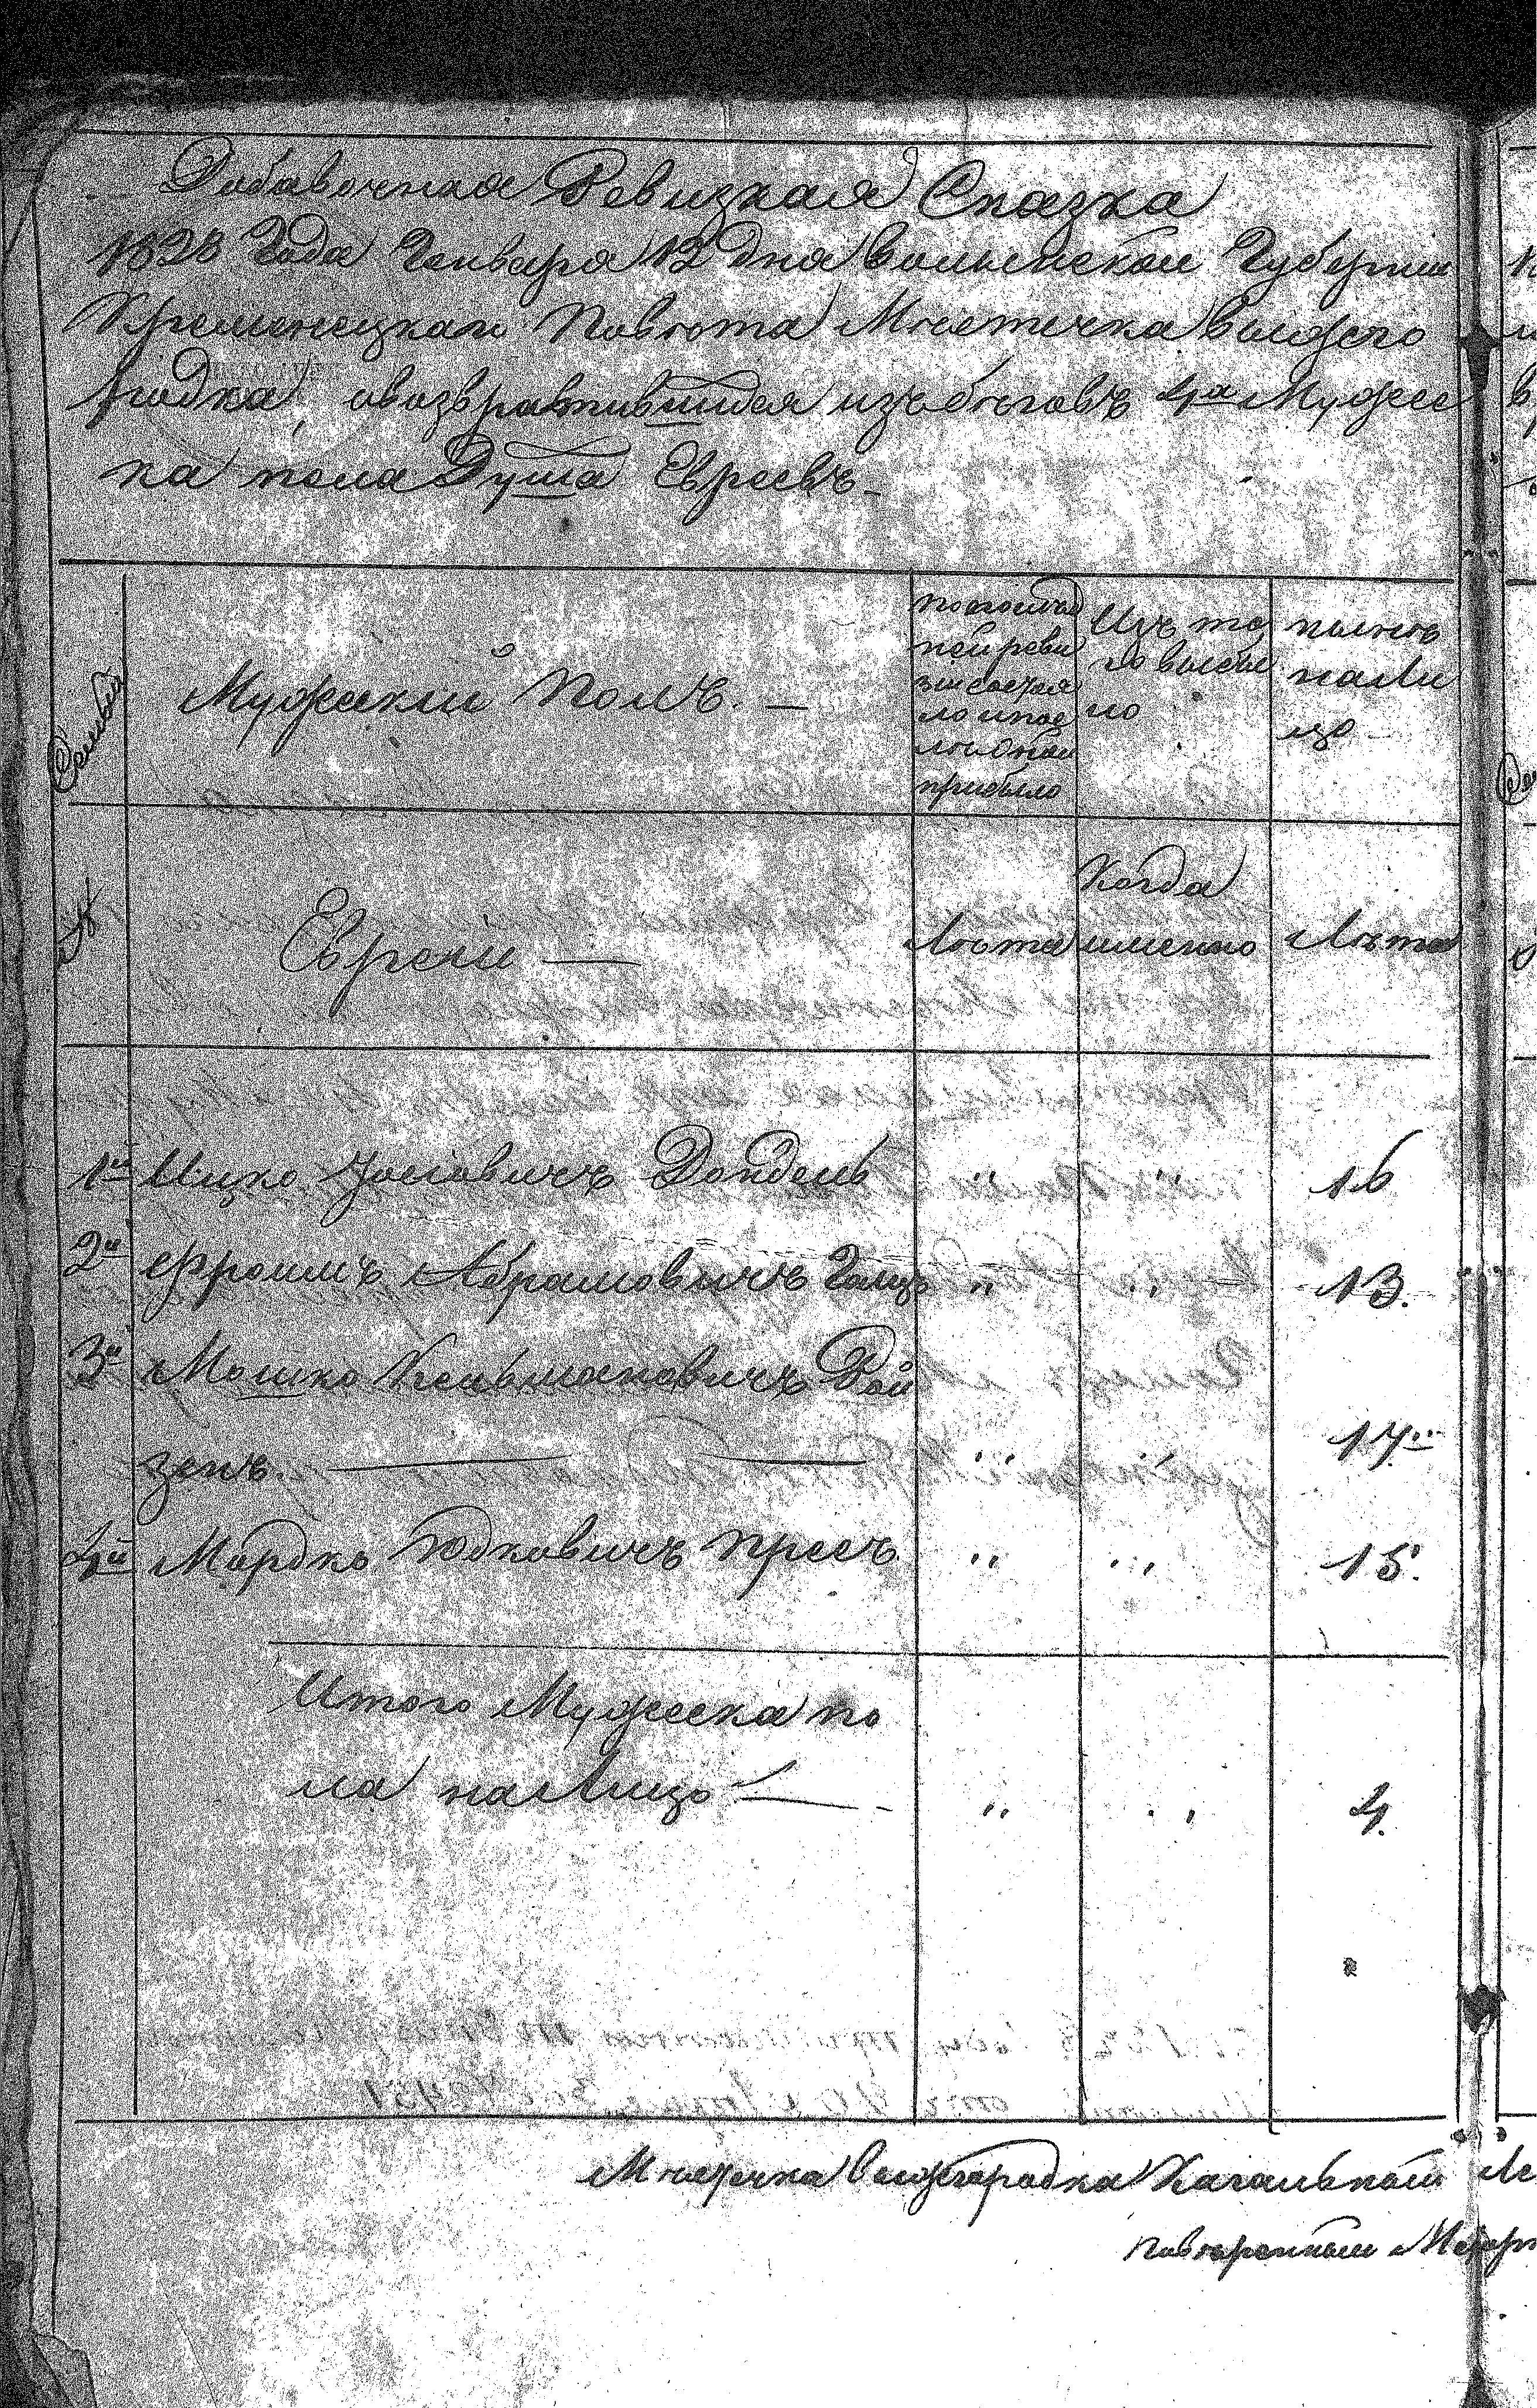 Добавочная Ревизкая Сказка
1828 Года Генваря 12 дня волынской Губернии
Кременецкаго Повета Местечка вышего
родка, о возвратившихся изъ бегов 4х Мужес
ка пола Душа Евреевъ
Семьи
Мужский Полъ. —
по последней реви зии состоя ло и после оной прибыло
Изъ то го выбы ло
ныне нали цо
№
Евреи —
Лета
Когда именно
Лета
1й Ицко Iосiовичъ Дондель " " 16
2й Фроимъ Абрамовичъ Галцъ " " 13.
3й Мошко Кельмановичъ Рой
зенъ. — " " 17
4й Мордко Юдковичъ Пресъ " " 15.
Итого Мужеска по
ла налицо — " " 4.
Местечка вышгородка Кагальной
поверенный